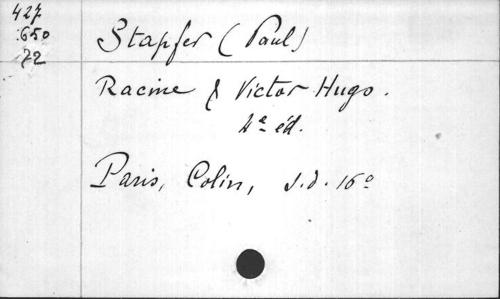 427
650
72
Stapfer (Paul)
Racine & Victor Hugo.
4e éd.
Paris, Colin, s.d. 16°